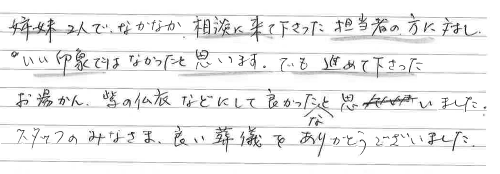 姉妹2人で、なかなか 相談に来て下さった 担当者の方に対し、
いい印象ではなかったと思います。でも 進めて下さった
お湯かん、紫の仏衣 などにして良かったなと思いました。
スタッフのみなさま、良い葬儀をありがとうございました。